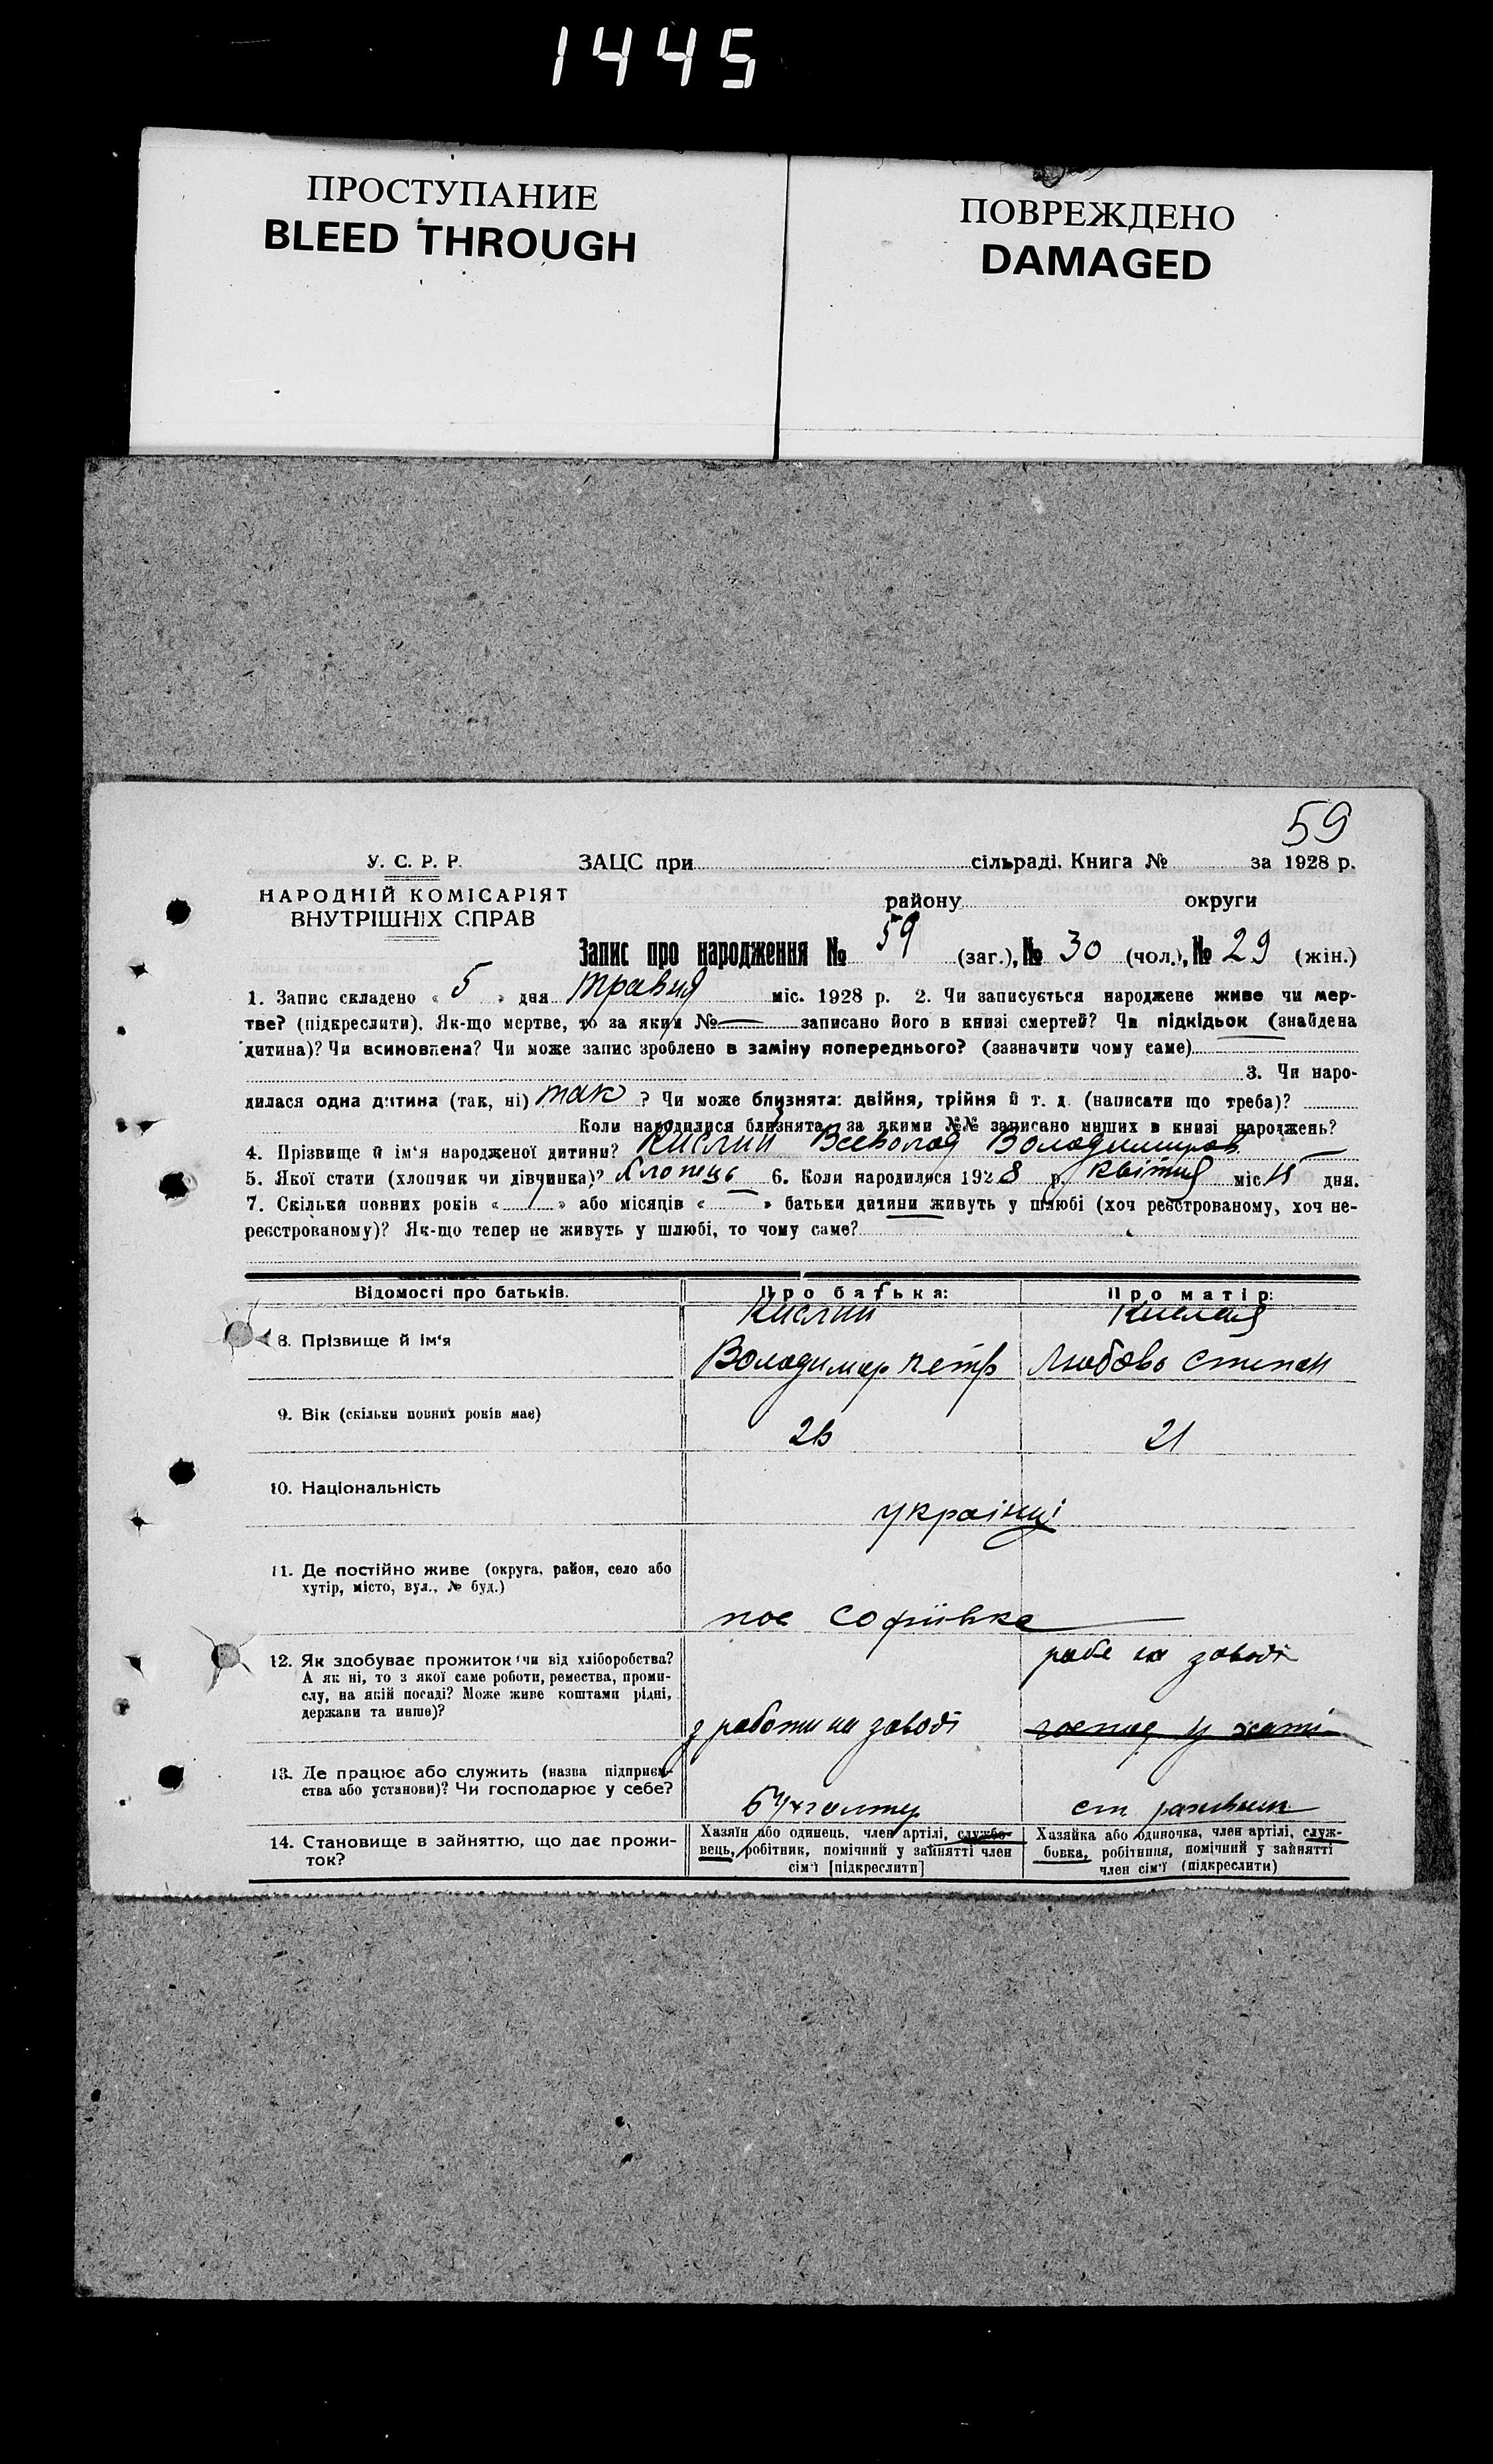 1445
ПРОСТУПАНИЕ
BLEED THROUGH
ПОВРЕЖДЕНО
DAMAGED
59
У. С. Р. Р. ЗАЦС при сільраді. Книга № за 1928 р.
НАРОДНІЙ КОМІСАРІЯТ
ВНУТРІШНІХ СПРАВ
району округи
Запис про народження № 59 (заг.), № 30 (чол.), № 29 (жін.)
1. Запис складено « 5 » дня травня міс. 1928 р. 2. Чи записується народжене живе чи мер-
тве? (підкреслити). Як-що мертве, то за яким № — записано його в книзі смертей? Чи підкідьок (знайдена
дитина)? Чи всиновлена? Чи може запис зроблено в заміну попереднього? (зазначити чому саме)
3. Чи наро-
дилася одна дитина (так, ні) так ? Чи може близнята: двійня, трійня й т. д. (написати що треба)?
Коли народилися близнята, за якими №№ записано инших в книзі народжень?
4. Прізвище й ім'я народженої дитини? Кислий Всеволод Володимиров.
5. Якої стати (хлопчик чи дівчинка)? Хлопець 6. Коли народилося 1928 р. квітня міс дня.
7. Скільки повних років « » або місяців « — » батьки дитини живуть у шлюбі (хоч реєстрованому, хоч не-
реєстрованому)? Як-що тепер не живуть у шлюбі, то чому саме?
Відомості про батьків. Про батька: Про матір:
Кислий Кислая
8. Прізвище й ім'я
Володимир Петр Любовь Степан
9. Вік (скільки повних років має)
21
10. Національність
українці
11. Де постійно живе (округа, район, село або
хутір, місто, вул., № буд.)
пос Софиівка
12. Як здобуває прожиток чи від хліборобства?
А як ні, то з якої саме роботи, ремества, проми-
слу, на якій посаді? Може живе коштами рідні,
держави та инше)?
робе на заводі
з работи на заводі господ у хаті
13. Де працює або служить (назва підприєм-
ства або установи)? Чи господарює у себе?
бухгалтер ст
14. Становище в зайняттю, що дає прожи-
ток?
Хазяїн або одинець, член артілі, службо-
вець, робітник, помічний у зайнятті член
сім'ї [підкреслити]
Хазяйка або одиночка, член артілі, служ-
бовка, робітниця, помічний у зайнятті
член сім'ї (підкреслити)